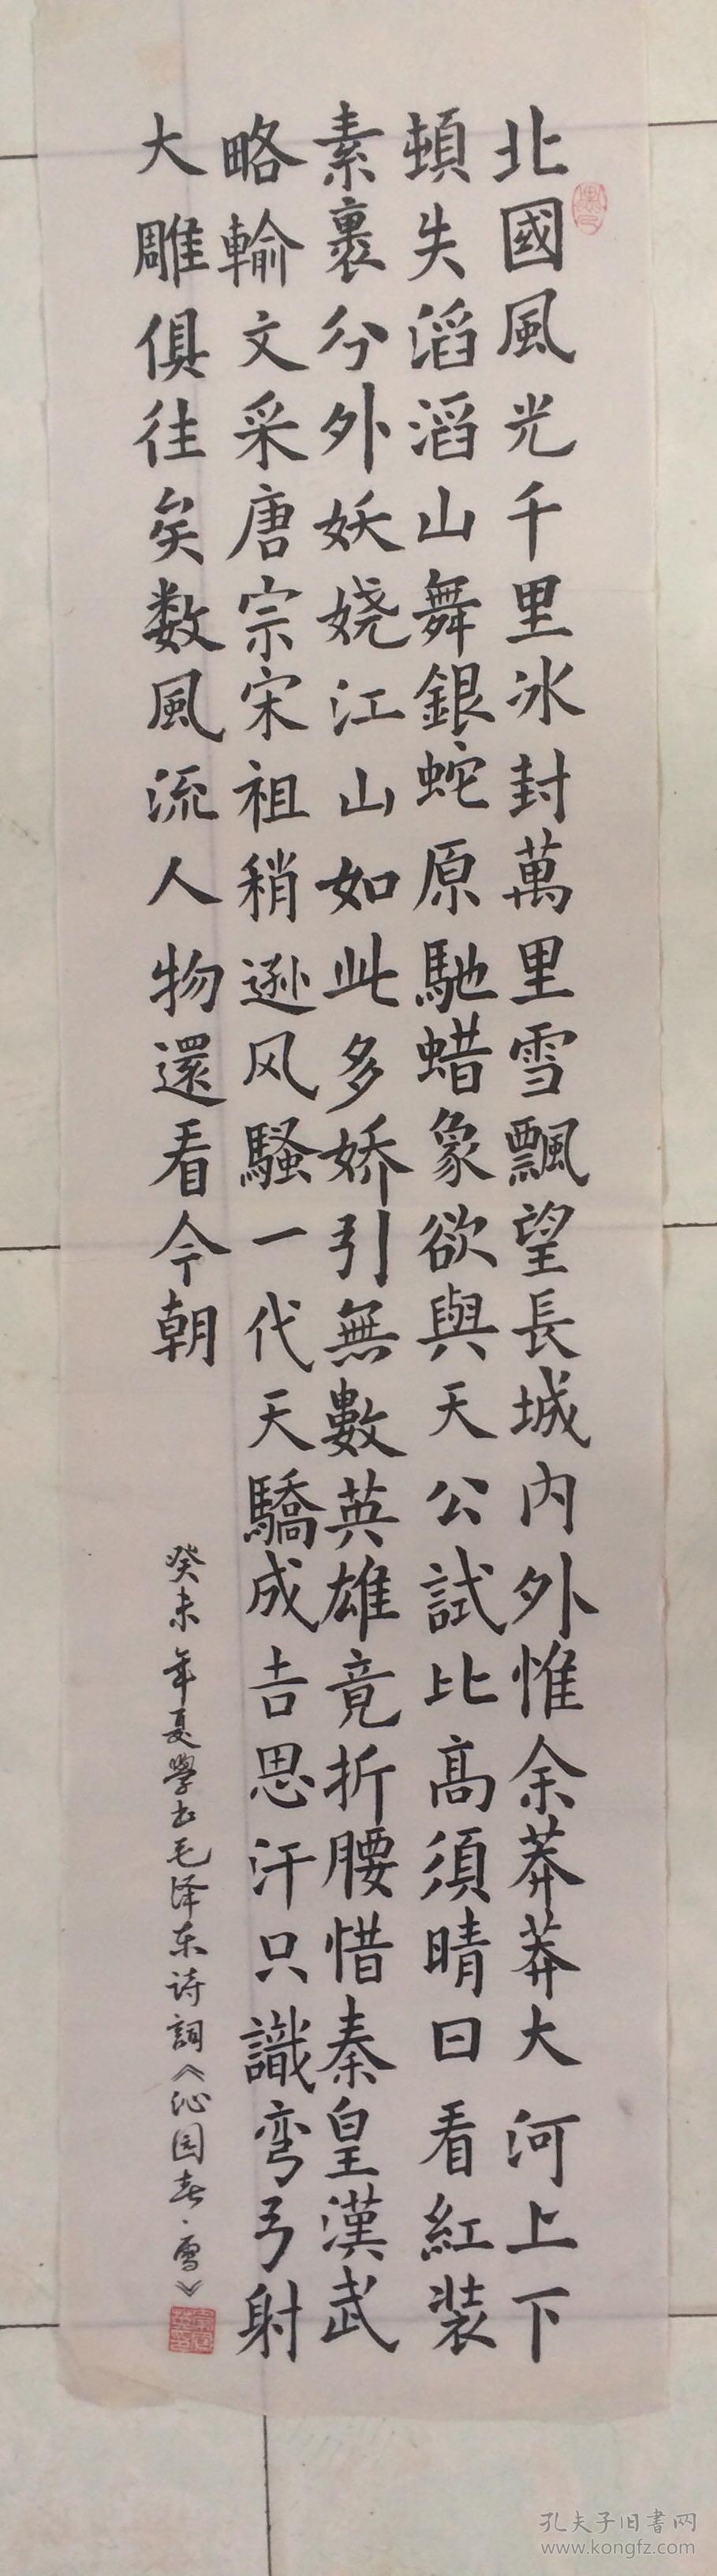 北國風光千里冰封萬里雪飄望長城内外惟余莽莽大河上下
頓失滔滔山舞銀蛇原馳蜡象欲與天公試比高須晴日看紅装
素裹分外妖娆江山如此多娇引無數英雄竟折腰惜秦皇漢武
略輸文采唐宗宋祖稍逊风騷一代天驕成吉思汗只識弯弓射
大雕俱往矣数風流人物還看今朝
癸未年夏學书毛泽东诗詞《沁园春·雪》
孔夫子旧書网
www.kongfz.com